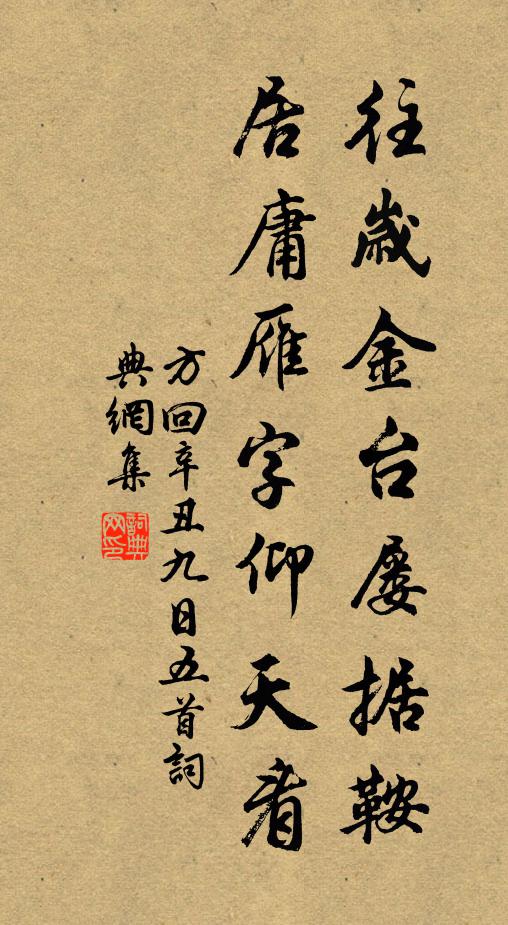 往歲金台屢据鞍
居庸雁字仰天看
方回辛丑九日五首詞
典網集
詞典網印